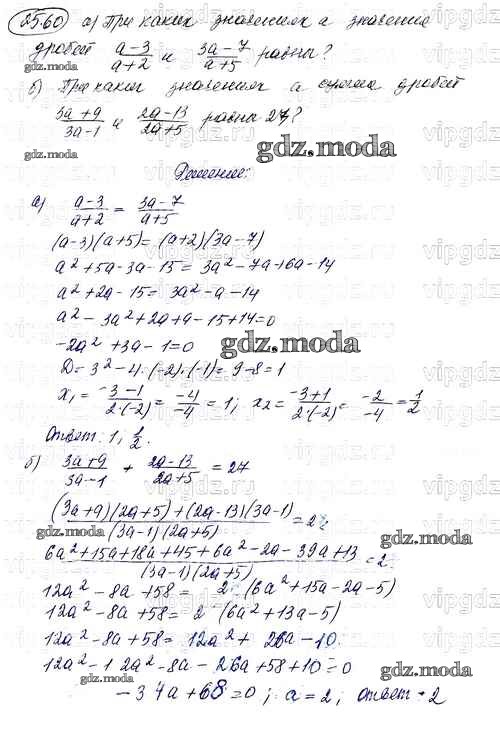 25.60 а) При каких значениях а значения
дробей (a-3)/(a+2) и (3a-7)/(a+5) равны?
б) При каких значениях а сумма дробей
(3a+9)/(3a-1) и (2a-13)/(2a+5) равны 2?
gdz.moda
gdz.moda
Решение:
а) (a-3)/(a+2) = (3a-7)/(a+5)
(a-3)(a+5)=(a+2)(3a-7)
a²+5a-3a-15=3a²-7a+6a-14
a²+2a-15=3a²-a-14
gdz.moda
a²-3a²+2a+a-15+14=0
-2a²+3a-1=0
gdz.moda
D=3²-4·(-2)·(-1)=9-8=1
x₁=(-3-1)/(2·(-2))=(-4)/(-4)=1; x₂=(-3+1)/(2·(-2))=(-2)/(-4)=1/2
Ответ: 1, 1/2.
б) (3a+9)/(3a-1) + (2a-13)/(2a+5) = 2
gdz.moda
((3a+9)(2a+5)+(2a-13)(3a-1))/((3a-1)(2a+5))=2
gdz.moda
gdz.moda
(6a²+15a+18a+45+6a²-2a-39a+13)/((3a-1)(2a+5))=2
12a²-8a+58= 2 (6a²+15a-2a-5)
12a²-8a+58= 2 (6a²+13a-5)
12a²-8a+58=12a²+26a-10
12a²-12a²-8a-26a+58+10=0
gdz.moda
gdz.moda
-34a+68=0; a=2; ответ 2